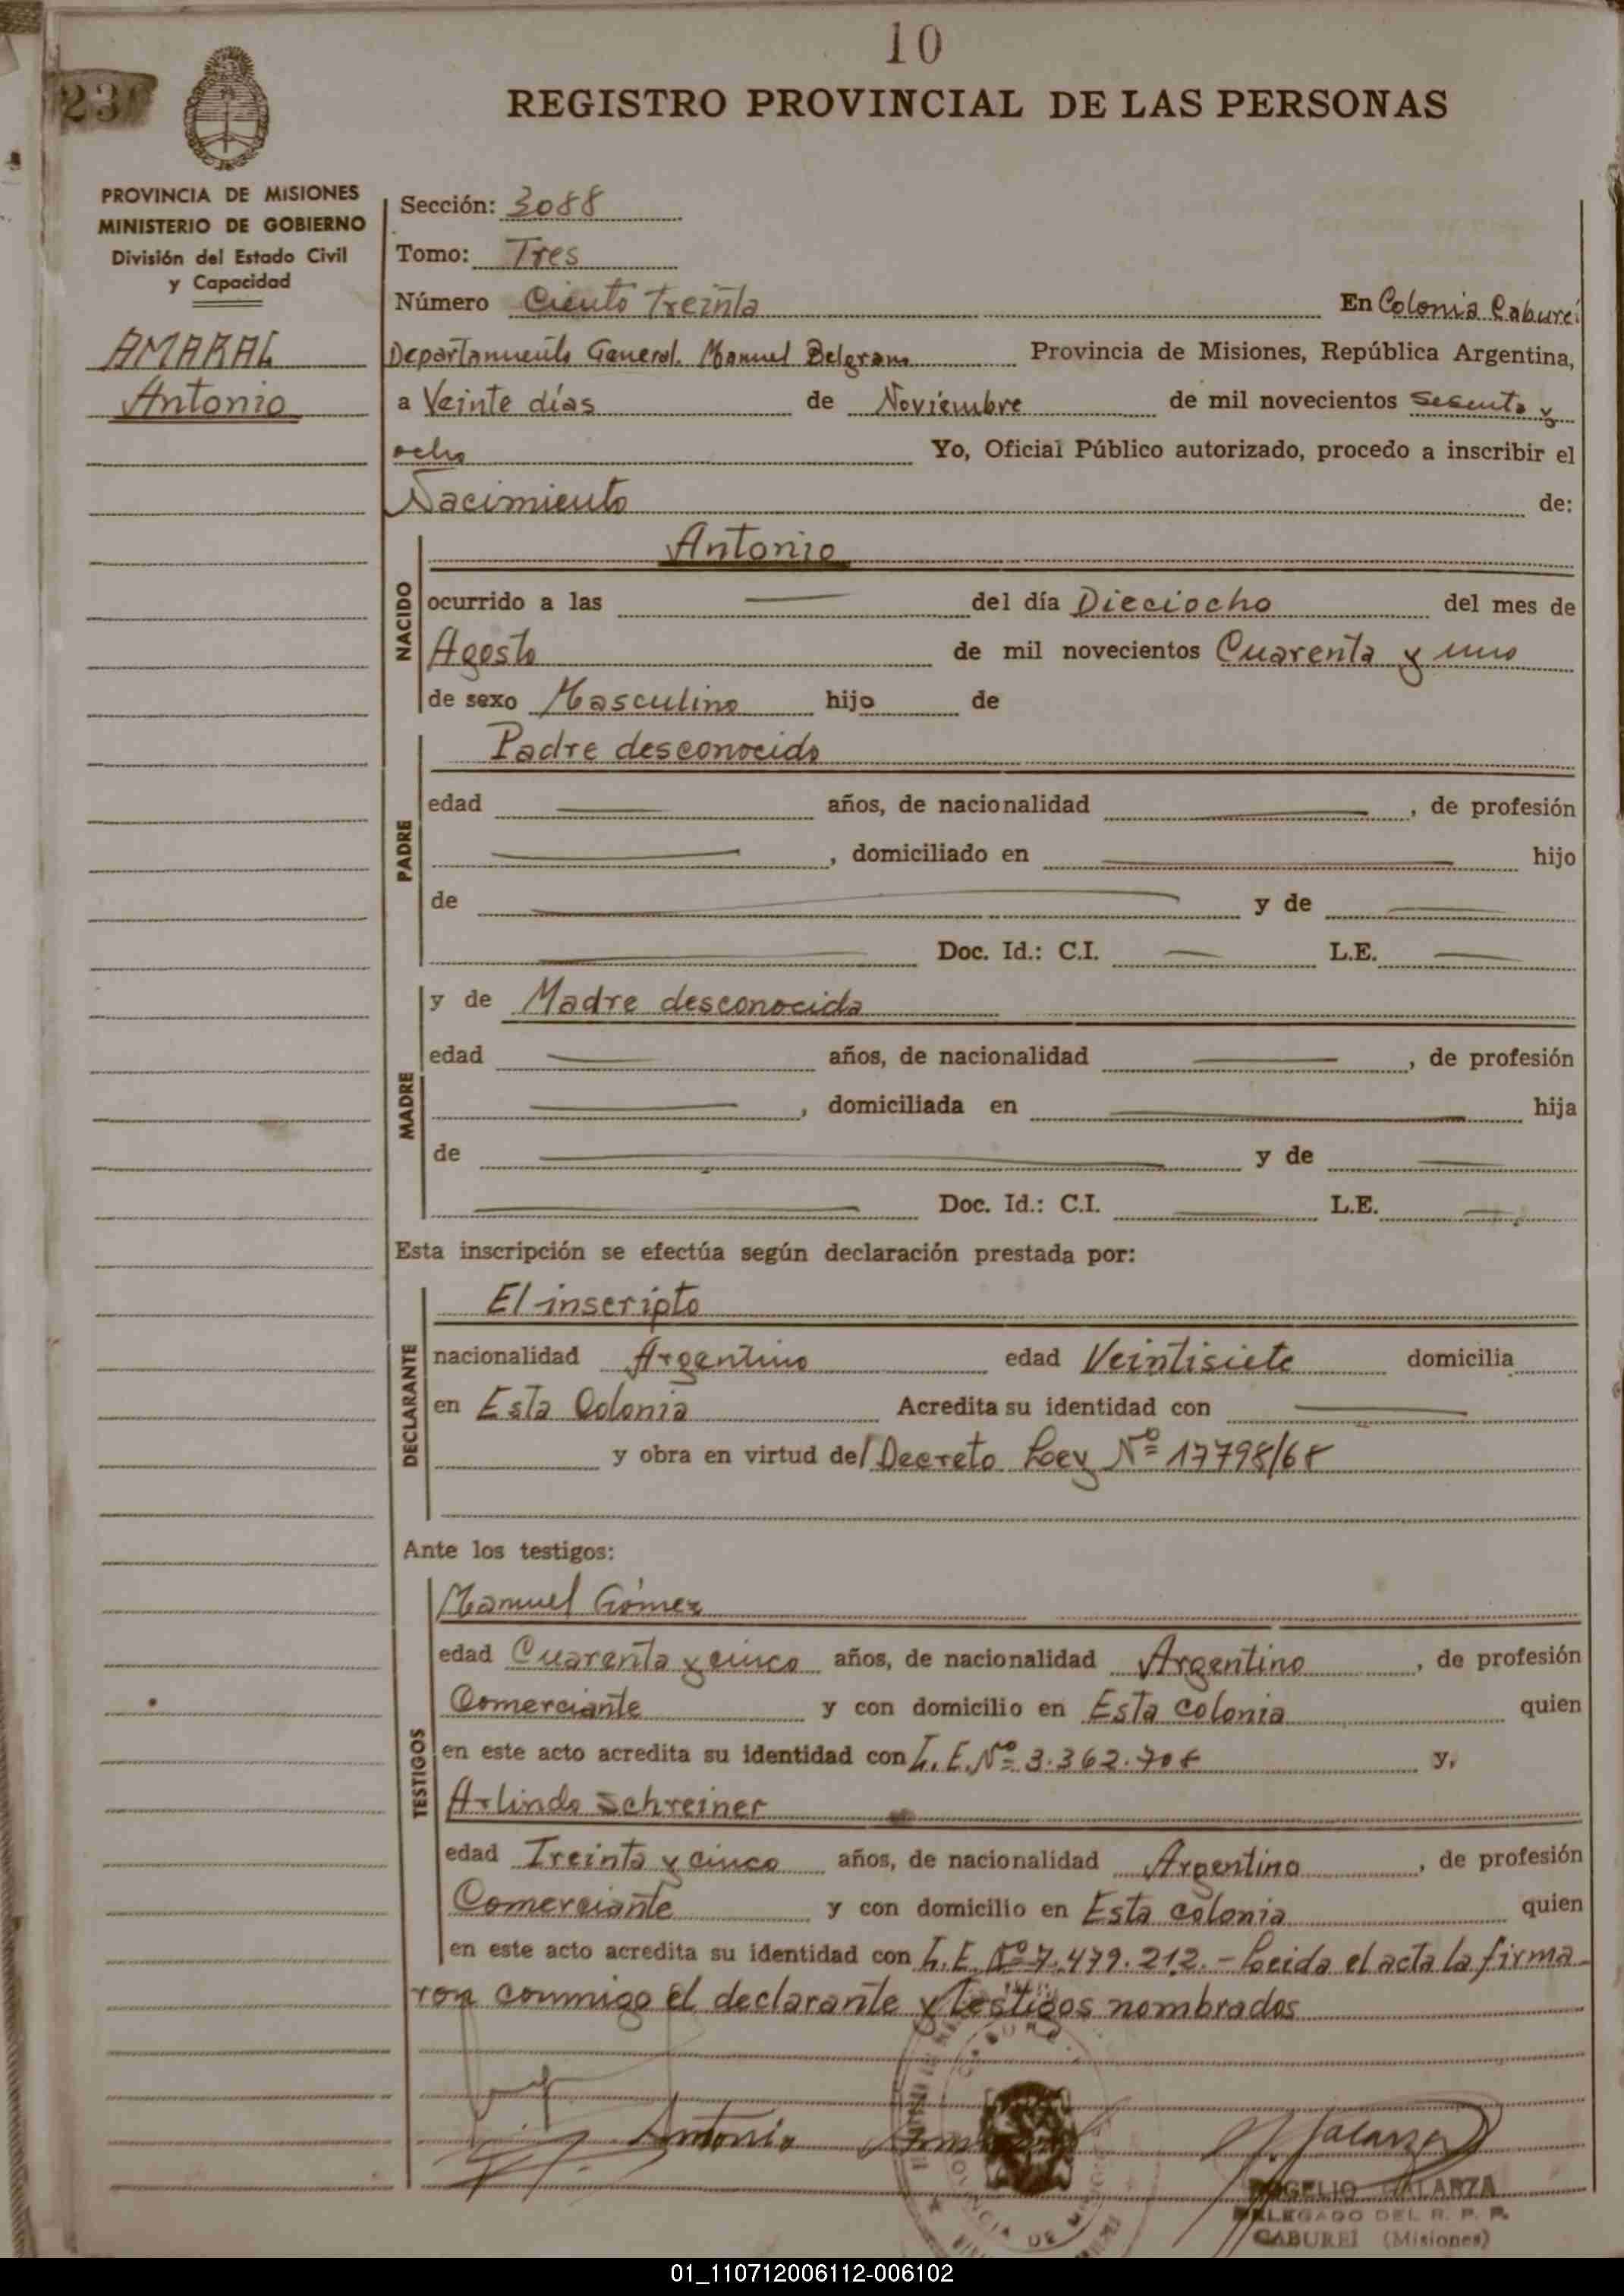 10
REGISTRO PROVINCIAL DE LAS PERSONAS
23
PROVINCIA DE MISIONES
MINISTERIO DE GOBIERNO
División del Estado Civil
y Capacidad
AMARAL
Antonio
Sección: 3088
Tomo: Tres
Número Ciento Treinta En Colonia Caburei
Departamento General. Manuel Belgrano Provincia de Misiones, República Argentina,
a Veinte días de Noviembre de mil novecientos sesenta y
ocho Yo, Oficial Público autorizado, procedo a inscribir el
Nacimiento de:
NACIDO
Antonio
ocurrido a las del día Dieciocho del mes de
Agosto de mil novecientos Cuarenta y uno
de sexo Masculino hijo de
PADRE
Padre desconocido
edad años, de nacionalidad , de profesión
, domiciliado en hijo
de y de
Doc. Id.: C.I. L.E.
MADRE
y de Madre desconocida
edad años, de nacionalidad , de profesión
, domiciliada en hija
de y de
Doc. Id.: C.I. L.E.
Esta inscripción se efectúa según declaración prestada por:
DECLARANTE
El inscripto
nacionalidad Argentino edad Veintisiete domicilia
en Esta Colonia Acredita su identidad con
y obra en virtud del Decreto Ley Nº 17798/68
Ante los testigos:
TESTIGOS
Manuel Gómez
edad Cuarenta y cinco años, de nacionalidad Argentino, de profesión
Comerciante y con domicilio en Esta colonia quien
en este acto acredita su identidad con L.E. Nº 3.362.708 y,
Arlindo Schreiner
edad Treinta y cinco años, de nacionalidad Argentino, de profesión
Comerciante y con domicilio en Esta colonia quien
en este acto acredita su identidad con L.E. Nº 7.479.212.- Leida el acta la firma
ron conmigo el declarante y testigos nombrados
Antonio
Galarza
ROGELIO GALARZA
DELEGADO DEL R. P. P.
CABUREI (Misiones)
01_110712006112-006102